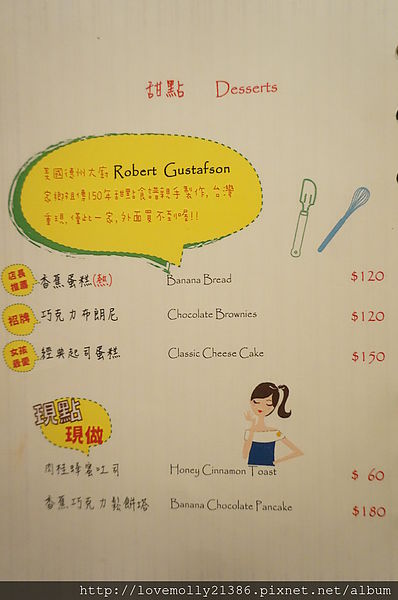 甜點 Desserts
美國德州大廚 Robert Gustafson
家鄉祖傳150年甜點食譜親手製作, 台灣
重現, 僅此一家, 外面買不到喔!!
店長推薦 香蕉蛋糕(熱) Banana Bread $120
招牌 巧克力布朗尼 Chocolate Brownies $120
女孩最愛 經典起司蛋糕 Classic Cheese Cake $150
現點
現做
肉桂蜂蜜吐司 Honey Cinnamon Toast $ 60
香蕉巧克力鬆餅塔 Banana Chocolate Pancake $180
http://lovemolly21386.pixnet.net/album